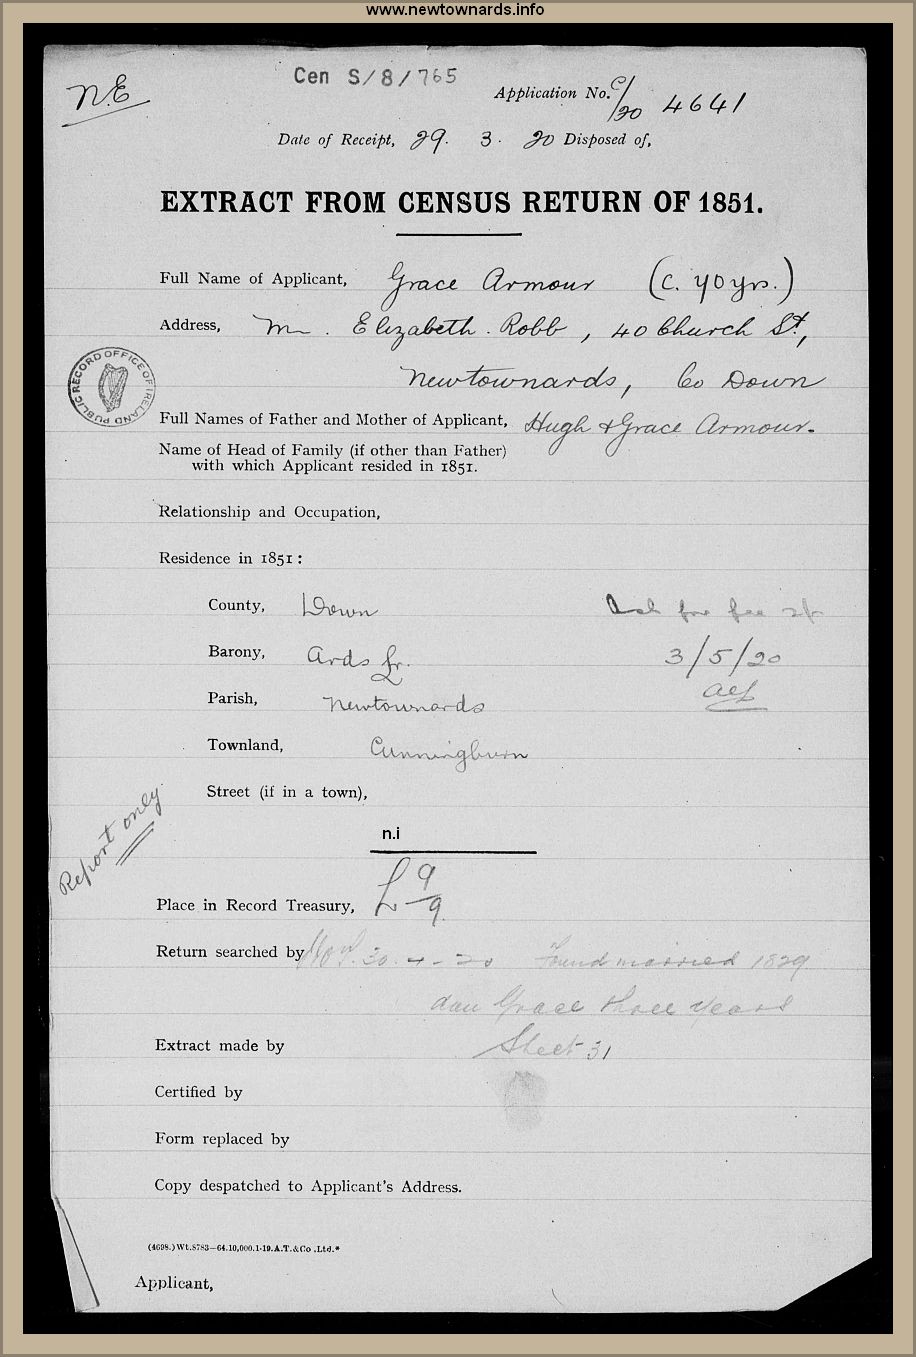 www.newtownards.info
Cen S/8/765
N.E
Application No. C/20 4641
Date of Receipt, 29. 3. 20 Disposed of,
EXTRACT FROM CENSUS RETURN OF 1851.
Full Name of Applicant, Grace Armour (c. 70 yrs.)
Address, Elizabeth. Robb, 40 Church St,
Newtownards, Co Down
PUBLIC RECORD OFFICE OF IRELAND
Full Names of Father and Mother of Applicant, Hugh & Grace Armour.
Name of Head of Family (if other than Father)
with which Applicant resided in 1851.
Relationship and Occupation,
Residence in 1851:
County, Down
Ask for fee 2/-
Barony, Ards Lr.
3/5/20
Parish, Newtownards
Townland, Cunningburn
Street (if in a town),
Report only
n.i
Place in Record Treasury, L 9/9
Return searched by 30-4-20 Found married 1829
dau Grace three years
Extract made by Sheet 31
Certified by
Form replaced by
Copy despatched to Applicant's Address.
(4698.)Wt.8783—64.10,000.1-19.A.T.&Co.,Ltd.*
Applicant,